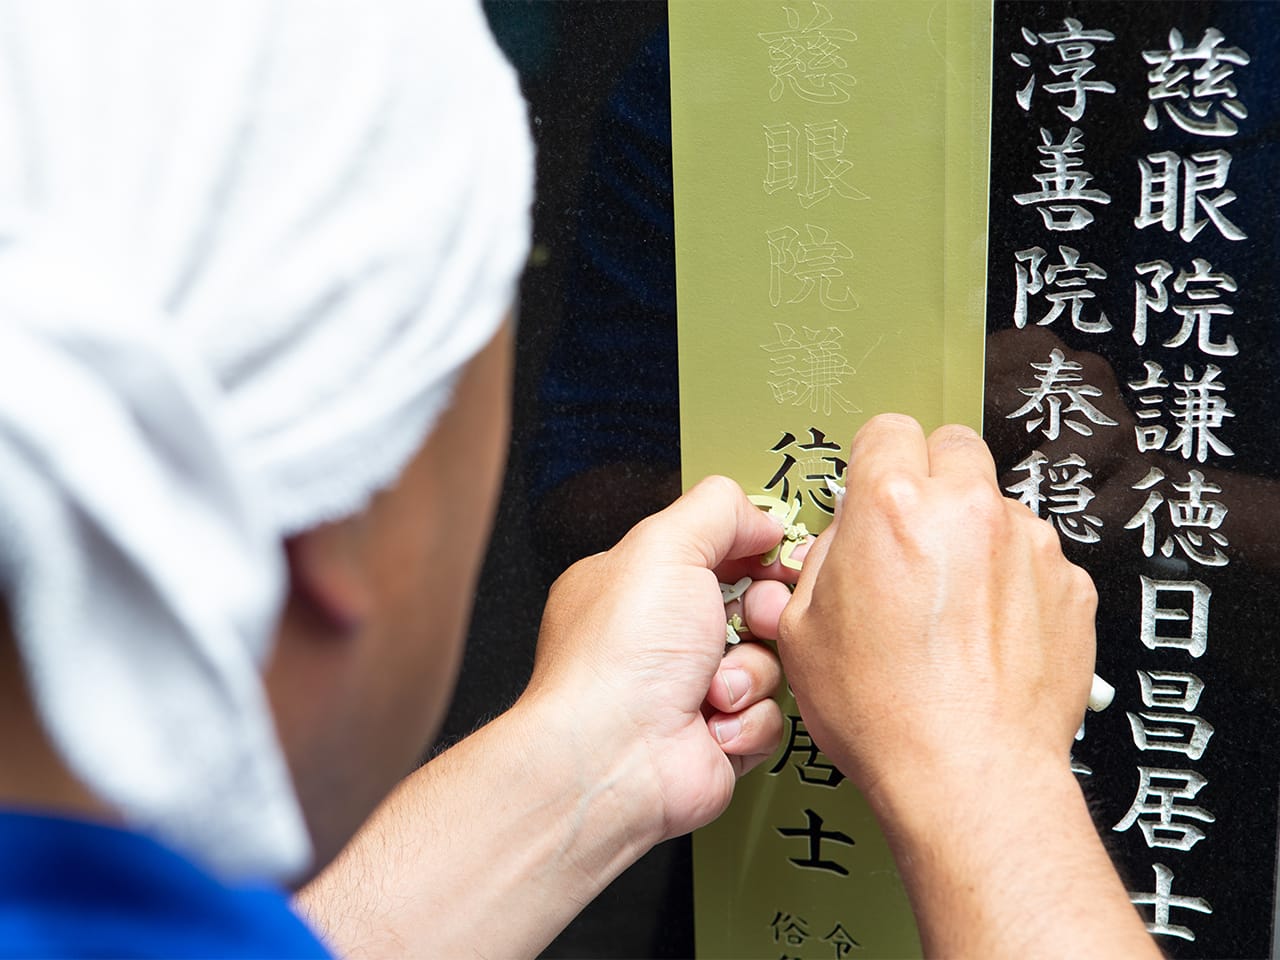 慈眼院謙徳日昌居士
淳善院泰穏
慈眼院謙徳居士
令
俗